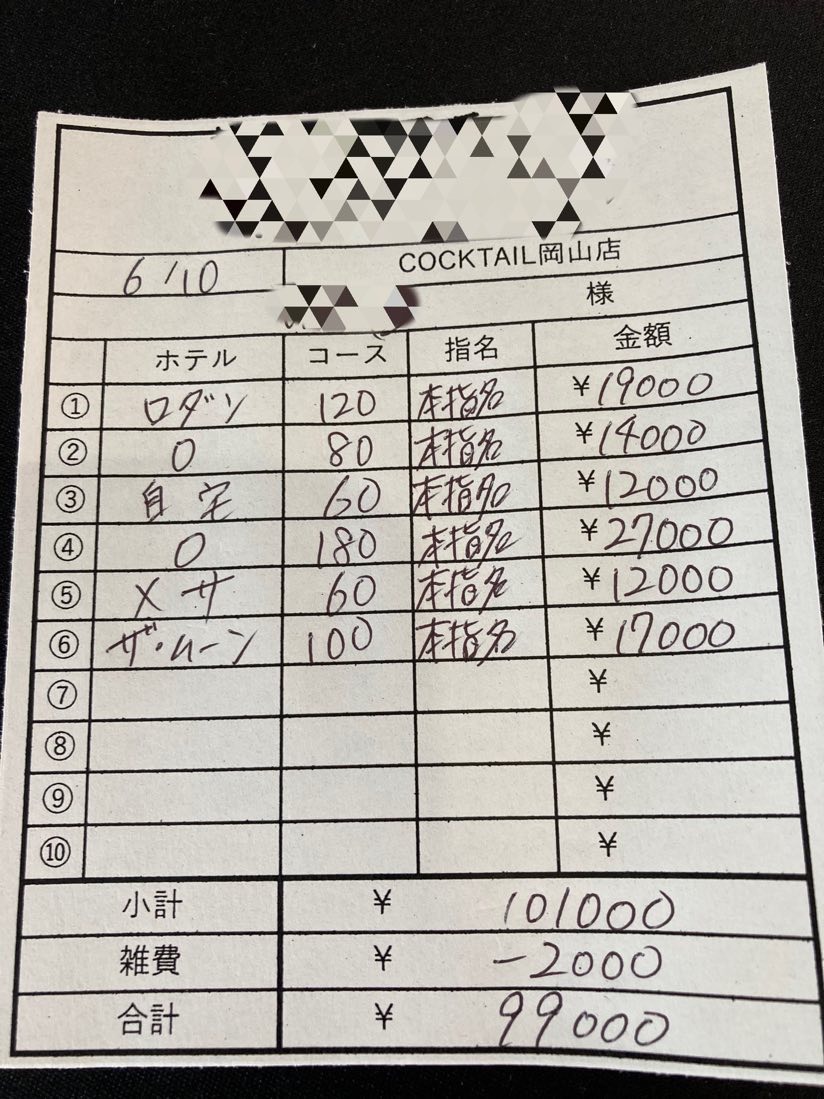 6/10 COCKTAIL岡山店
様
ホテル コース 指名 金額
① ロダン 120 本指名 ¥19000
② O 80 本指名 ¥14000
③ 自宅 60 本指名 ¥12000
④ O 180 本指名 ¥27000
⑤ メサ 60 本指名 ¥12000
⑥ ザ・ムーン 100 本指名 ¥17000
⑦ ¥
⑧ ¥
⑨ ¥
⑩ ¥
小計 ¥ 101000
雑費 ¥ -2000
合計 ¥ 99000